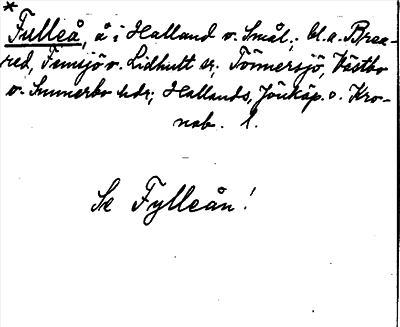 * Fulleå, å i Halland o. Smål.; bl.a. Brea-
red, Femsjö o. Lidhult sr; Tönnersjö, Västbo
o. Sunnerbo hdr; Hallands, Jönköp. o. Kro-
nob. l.
Se Fylleån!